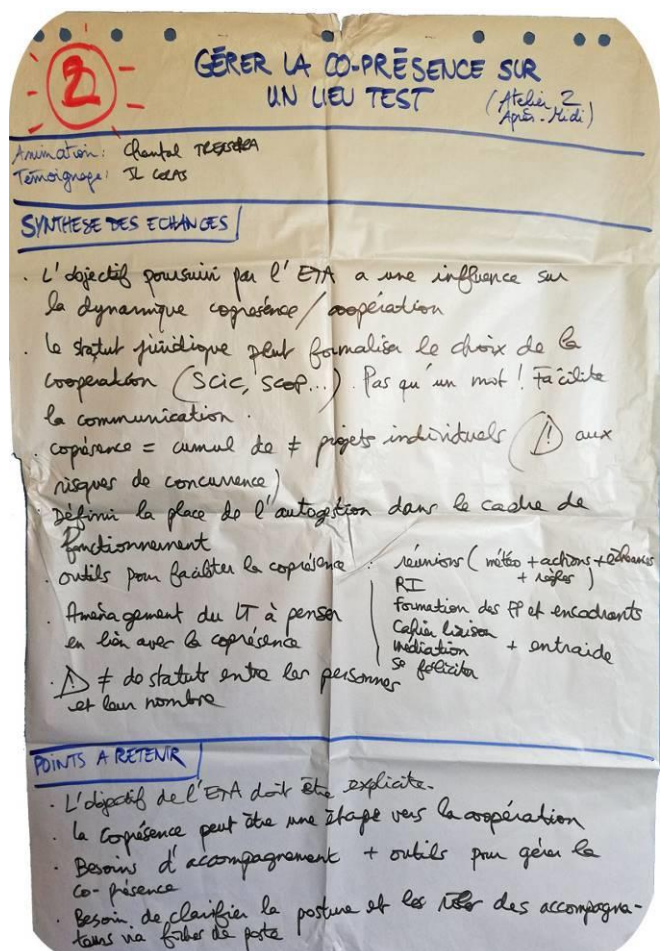 2
GÉRER LA CO-PRÉSENCE SUR
UN LIEU TEST
(Atelier 2
Après-Midi)
Animation: Chantal
Témoignage: JL COLAS
SYNTHESE DES ECHANGES
. L'objectif poursuivi par l'ETA a une influence sur
la dynamique coprésence / coopération
. Le statut juridique peut formaliser le choix de la
coopération (SCIC, SCOP...). Pas qu'un mot ! Facilite
la communication.
. coprésence = cumul de ≠ projets individuels (⚠ aux
risques de concurrence)
. Définir la place de l'autogestion dans le cadre de
fonctionnement
. outils pour faciliter la coprésence : réunions (météo + actions + échéances
+ règles)
RI
Formation des PP et encadrants
Cahier liaison
médiation + entraide
se féliciter
. Aménagement du LT à penser
en lien avec la coprésence
. ⚠ ≠ de statuts entre les personnes
et leur nombre
POINTS A RETENIR
. L'objectif de l'ETA doit être explicite.
. La coprésence peut être une étape vers la coopération
. Besoins d'accompagnement + outils pour gérer la
co-présence
. Besoin de clarifier la posture et les rôles des accompagna-
teurs via fiches de poste